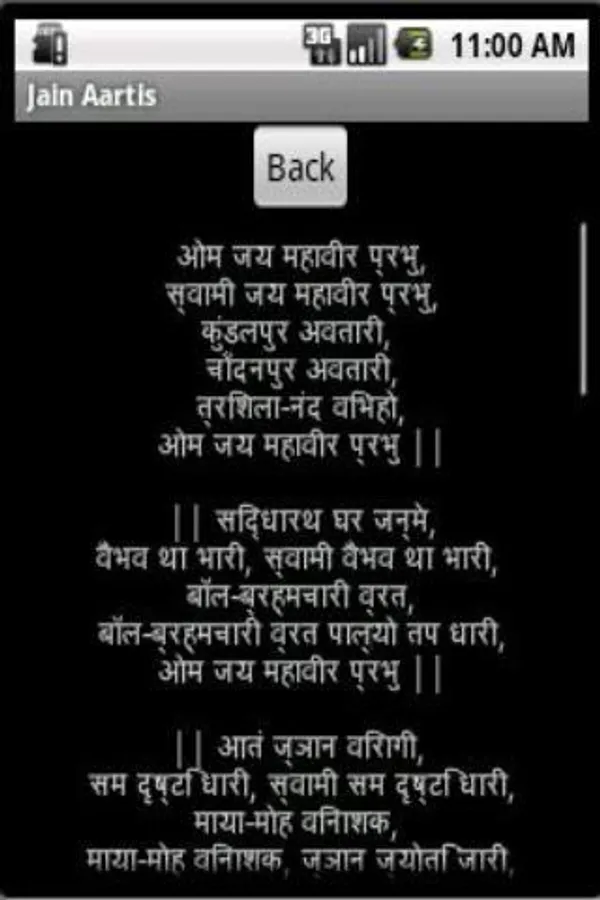 3G
11:00 AM
Jain Aartis
Back
ओम जय महावीर प्रभु,
स्वामी जय महावीर प्रभु,
कुंडलपुर अवतारी,
चाँदनपुर अवतारी,
त्रशिला-नंद वभिहो,
ओम जय महावीर प्रभु ||
|| सद्धिारथ घर जन्मे,
वैभव था भारी, स्वामी वैभव था भारी,
बॉल-ब्रह्मचारी व्रत,
बॉल-ब्रह्मचारी व्रत पाल्यो तप धारी,
ओम जय महावीर प्रभु ||
|| आतं ज्ञान वरिागी,
सम दृष्टि धारी, स्वामी सम दृष्टि धारी,
माया-मोह वनिाशक,
माया-मोह वनिाशक, ज्ञान ज्योति जारी,